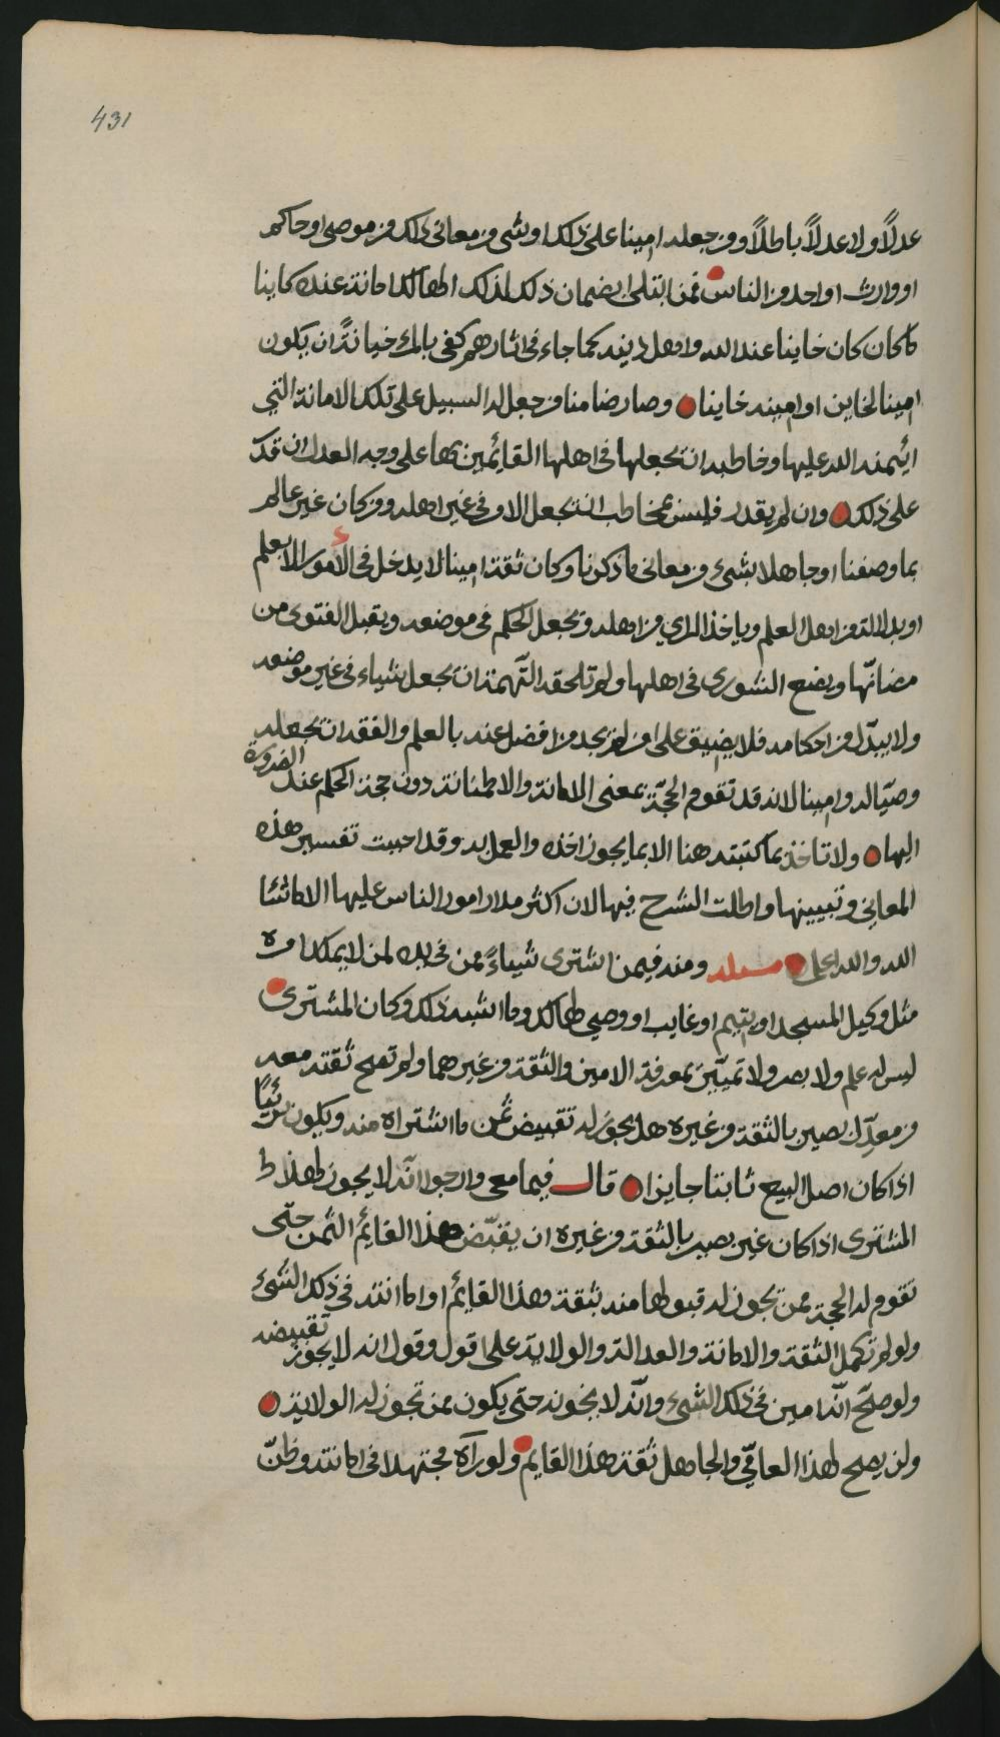 431
عدلًا ولا عدلًا باطلًا ومن جعله امينا على ذلك او شي من معاني ذلك من موصي او حاكم
او وارث او احد من الناس فمن ابتلي بضمان ذلك لذلك اطالك امانة عنده كاينا
ما كان كان خاينا عند الله واهل دينه كما جاء في اثارهم كفى بالمرء خيانةً ان يكون
امينا لخاين او امينه خاينا وصار ضامنا من جعل له السبيل على تلك الامانة التي
ائتمنه الله عليها وخاطبه ان يجعلها في اهلها القائمين بها على وجه العدل ان قدر
على ذلك وان لم يقدر فليس بمخاطب ان يجعل الامر في غير اهله ومن كان غير عالم
بما وصفنا او جاهلا بشيء من معاني ما ذكرنا وكان ثقة امينا لا يدخل في الأمور الا بعلم
او بدلالة من اهل العلم وياخذ الراي من اهله ويجعل الحكم في موضعه ويقبل الفتوى من
مضانّها ويضع الشورى في اهلها ولم تلحقه التّهمة ان يجعل شياء في غير موضعه
ولا يبدّل من احكامه فلا يضيق على من لم يجد من افضل عنه بالعلم والفقه ان يجعله
وصيّا له وامينا لانه قد تقوم الحجّة بمعنى الامانة والاطمئنانة دون حجة الحكم عند الضرورة
اليها ولا تاخذ بما كتبته هنا الا بما يجوز اخذه والعمل به وقد احببت تفسير هذه
المعاني وتبيينها واطلت الشرح فيها لان اكثر مدار امور الناس عليها الا ما شا
الله والله اعلم مسئلة ومنه فيمن اشترى شياءً ممن في يده لمن لا يملك امره
مثل وكيل المسجد او يتيم او غايب او وصي لهالك وما اشبه ذلك وكان المشترى
ليس له علم ولا بصر ولا تمييّز بمعرفة الامين والثقة من غيرهما ولم تصح ثقته معه
من معدّل بصير بالثقة من غيره هل يجوز له تقبيض ثمن ما اشتراه منه ويكون بريًا
اذا كان اصل البيع ثابتا جايزا قال فيما معي وارجوا انّه لا يجوز لهذا
المشترى اذا كان غير بصير بالثقة من غيره ان يقبّض هذا القايم الثمن حتّى
تقوم له الحجة ممن يجوز له قبولها منه بثقة هذا القايم او امانته في ذلك الشيء
ولو لم تكمل الثقة والامانة والعدالة والولاية على قول وقول انه لا يجوز تقبيضه
ولو صحّ انّه امين في ذلك الشيء وانّه لا يخونه حتى يكون ممن تجوز له الولاية
ولن يصح لهذا العامّي والجاهل ثقة هذا القايم ولو رآه مجتهدا في امانته وظنّ